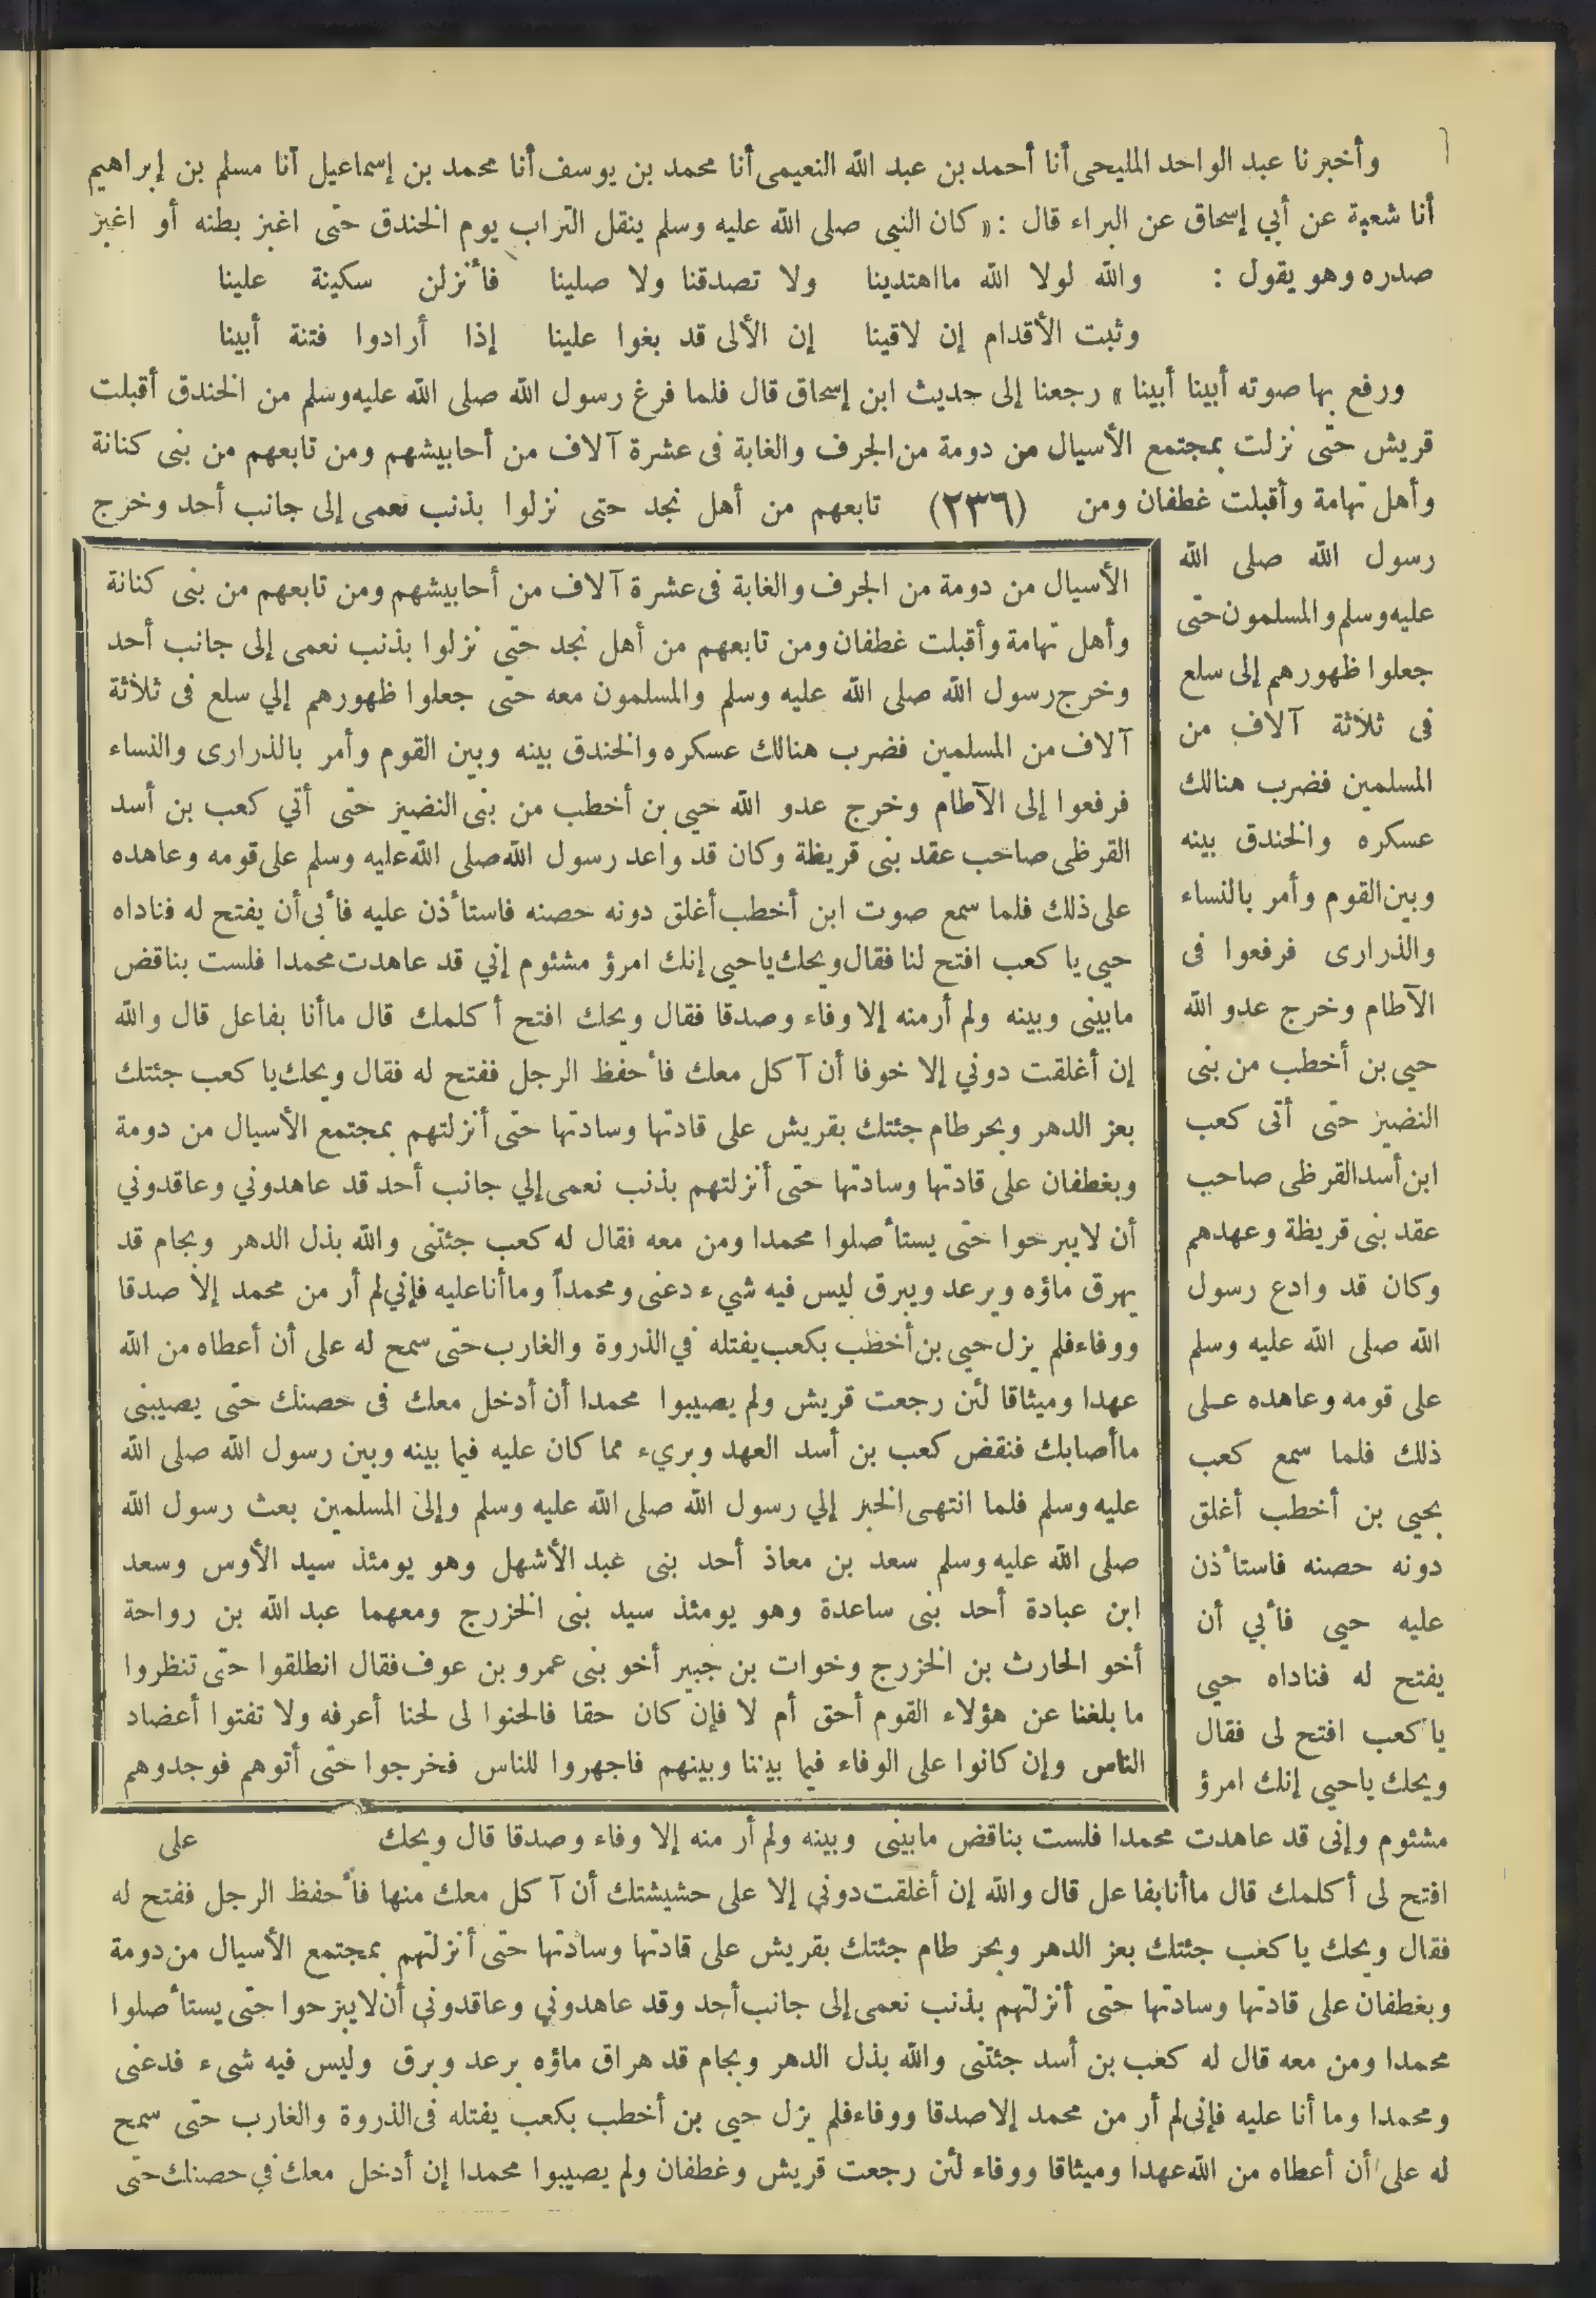 وأخبرنا عبد الواحد المليحى أنا أحمد بن عبد الله النعيمى أنا محمد بن يوسف أنا محمد بن إسماعيل أنا مسلم بن إبراهيم
أنا شعبة عن أبي إسحاق عن البراء قال : « كان النبى صلى الله عليه وسلم ينقل التراب يوم الخندق حتى اغبر بطنه أو اغبر
صدره وهو يقول : والله لولا الله مااهتدينا ولا تصدقنا ولا صلينا فأنزلن سكينة علينا
وثبت الأقدام إن لاقينا إن الألى قد بغوا علينا إذا أرادوا فتنة أبينا
ورفع بها صوته أبينا أبينا » رجعنا إلى حديث ابن إسحاق قال فلما فرغ رسول الله صلى الله عليه وسلم من الخندق أقبلت
قريش حتى نزلت بمجتمع الأسيال من دومة من الجرف والغابة فى عشرة آلاف من أحابيشهم ومن تابعهم من بنى كنانة
وأهل تهامة وأقبلت غطفان ومن (٢٣٦) تابعهم من أهل نجد حتى نزلوا بذنب نعمى إلى جانب أحد وخرج
رسول الله صلى الله
عليه وسلم والمسلمون حتى
جعلوا ظهورهم إلى سلع
فى ثلاثة آلاف من
المسلمين فضرب هنالك
عسكره والخندق بينه
وبين القوم وأمر بالنساء
والذرارى فرفعوا فى
الآطام وخرج عدو الله
حيى بن أخطب من بنى
النضير حتى أتى كعب
ابن أسد القرظى صاحب
عقد بنى قريظة وعهدهم
وكان قد وادع رسول
الله صلى الله عليه وسلم
على قومه وعاهده على
ذلك فلما سمع كعب
بحيى بن أخطب أغلق
دونه حصنه فاستأذن
عليه حيى فأبي أن
يفتح له فناداه حيى
يا كعب افتح لى فقال
ويحك ياحيى إنك امرؤ
مشئوم وإنى قد عاهدت محمدا فلست بناقض مابينى وبينه ولم أر منه إلا وفاء وصدقا قال ويحك
افتح لى أكلمك قال ماأنابفاعل قال والله إن أغلقت دوني إلا على حشيشتك أن آكل معك منها فأحفظ الرجل ففتح له
فقال ويحك يا كعب جئتك بعز الدهر وبحر طام جئتك بقريش على قادتها وسادتها حتى أنزلتهم بمجتمع الأسيال من دومة
وبغطفان على قادتها وسادتها حتى أنزلتهم بذنب نعمى إلى جانب أحد وقد عاهدوني وعاقدوني أن لايبرحوا حتى يستأصلوا
محمدا ومن معه قال له كعب بن أسد جئتنى والله بذل الدهر وبجام قد هراق ماؤه برعد وبرق وليس فيه شىء فدعنى
ومحمدا وما أنا عليه فإنى لم أر من محمد إلا صدقا ووفاء فلم يزل حيى بن أخطب بكعب يفتله فى الذروة والغارب حتى سمح
له على أن أعطاه من الله عهدا وميثاقا ووفاء لئن رجعت قريش وغطفان ولم يصيبوا محمدا إن أدخل معك في حصنك حتى
الأسيال من دومة من الجرف والغابة فى عشرة آلاف من أحابيشهم ومن تابعهم من بنى كنانة
وأهل تهامة وأقبلت غطفان ومن تابعهم من أهل نجد حتى نزلوا بذنب نعمى إلى جانب أحد
وخرج رسول الله صلى الله عليه وسلم والمسلمون معه حتى جعلوا ظهورهم إلي سلع فى ثلاثة
آلاف من المسلمين فضرب هنالك عسكره والخندق بينه وبين القوم وأمر بالذرارى والنساء
فرفعوا إلى الآطام وخرج عدو الله حيى بن أخطب من بنى النضير حتى أتي كعب بن أسد
القرظى صاحب عقد بنى قريظة وكان قد واعد رسول الله صلى الله عليه وسلم على قومه وعاهده
على ذلك فلما سمع صوت ابن أخطب أغلق دونه حصنه فاستأذن عليه فأبى أن يفتح له فناداه
حيى يا كعب افتح لنا فقال ويحك ياحيى إنك امرؤ مشئوم إني قد عاهدت محمدا فلست بناقض
مابينى وبينه ولم أرمنه إلا وفاء وصدقا فقال ويحك افتح أكلمك قال ماأنا بفاعل قال والله
إن أغلقت دوني إلا خوفا أن آكل معك فأحفظ الرجل ففتح له فقال ويحك يا كعب جئتك
بعز الدهر وبحر طام جئتك بقريش على قادتها وسادتها حتى أنزلتهم بمجتمع الأسيال من دومة
وبغطفان على قادتها وسادتها حتى أنزلتهم بذنب نعمى إلي جانب أحد قد عاهدوني وعاقدوني
أن لايبرحوا حتى يستأصلوا محمدا ومن معه فقال له كعب جئتنى والله بذل الدهر وبجام قد
يهرق ماؤه ويرعد ويبرق ليس فيه شيء دعنى ومحمداً وماأنا عليه فإني لم أر من محمد إلا صدقا
ووفاء فلم يزل حيى بن أخطب بكعب يفتله في الذروة والغارب حتى سمح له على أن أعطاه من الله
عهدا وميثاقا لئن رجعت قريش ولم يصيبوا محمدا أن أدخل معك فى حصنك حتى يصيبنى
ماأصابك فنقض كعب بن أسد العهد وبريء مما كان عليه فيما بينه وبين رسول الله صلى الله
عليه وسلم فلما انتهى الخبر إلي رسول الله صلى الله عليه وسلم وإلى المسلمين بعث رسول الله
صلى الله عليه وسلم سعد بن معاذ أحد بنى عبد الأشهل وهو يومئذ سيد الأوس وسعد
ابن عبادة أحد بنى ساعدة وهو يومئذ سيد بنى الخزرج ومعهما عبد الله بن رواحة
أخو الحارث بن الخزرج وخوات بن جبير أخو بنى عمرو بن عوف فقال انطلقوا حتى تنظروا
ما بلغنا عن هؤلاء القوم أحق أم لا فإن كان حقا فالحنوا لى لحنا أعرفه ولا تفتوا أعضاد
الناس وإن كانوا على الوفاء فيما بيننا وبينهم فاجهروا للناس فخرجوا حتى أتوهم فوجدوهم
على